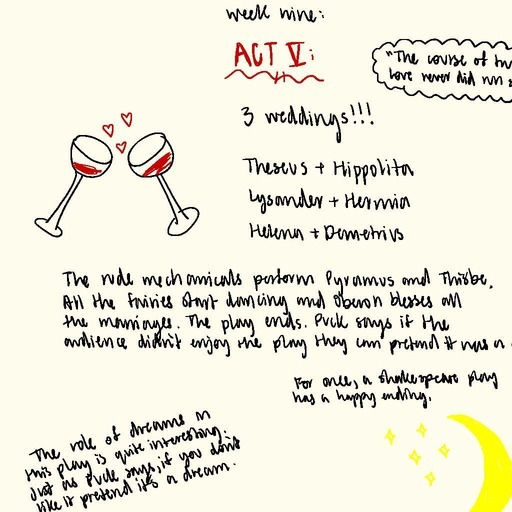 week nine:
ACT V:
"The course of
love never did run
3 weddings!!!
Theseus + Hippolita
Lysander + Hermia
Helena + Demetrius
The rude mechanicals perform Pyramus and Thisbe.
All the fairies start dancing and Oberon blesses all
the marriages. The play ends. Puck says if the
audience didn't enjoy the play they can pretend it was a
For once, a shakespeare play
has a happy ending.
The role of dreams in
this play is quite interesting.
Just as Puck says, if you don't
like it pretend it's a dream.